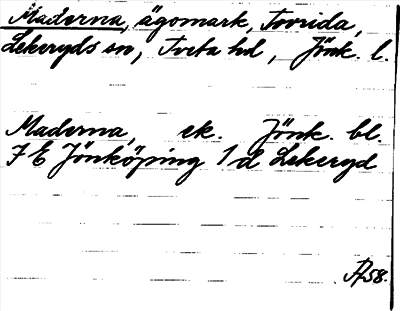 Maderna, ägomark, Torrida,
Lekeryds sn, Tveta hd, Jönk. l.
Maderna, ek. Jönk. bl
7 E Jönköping 1 d Lekeryd
58.